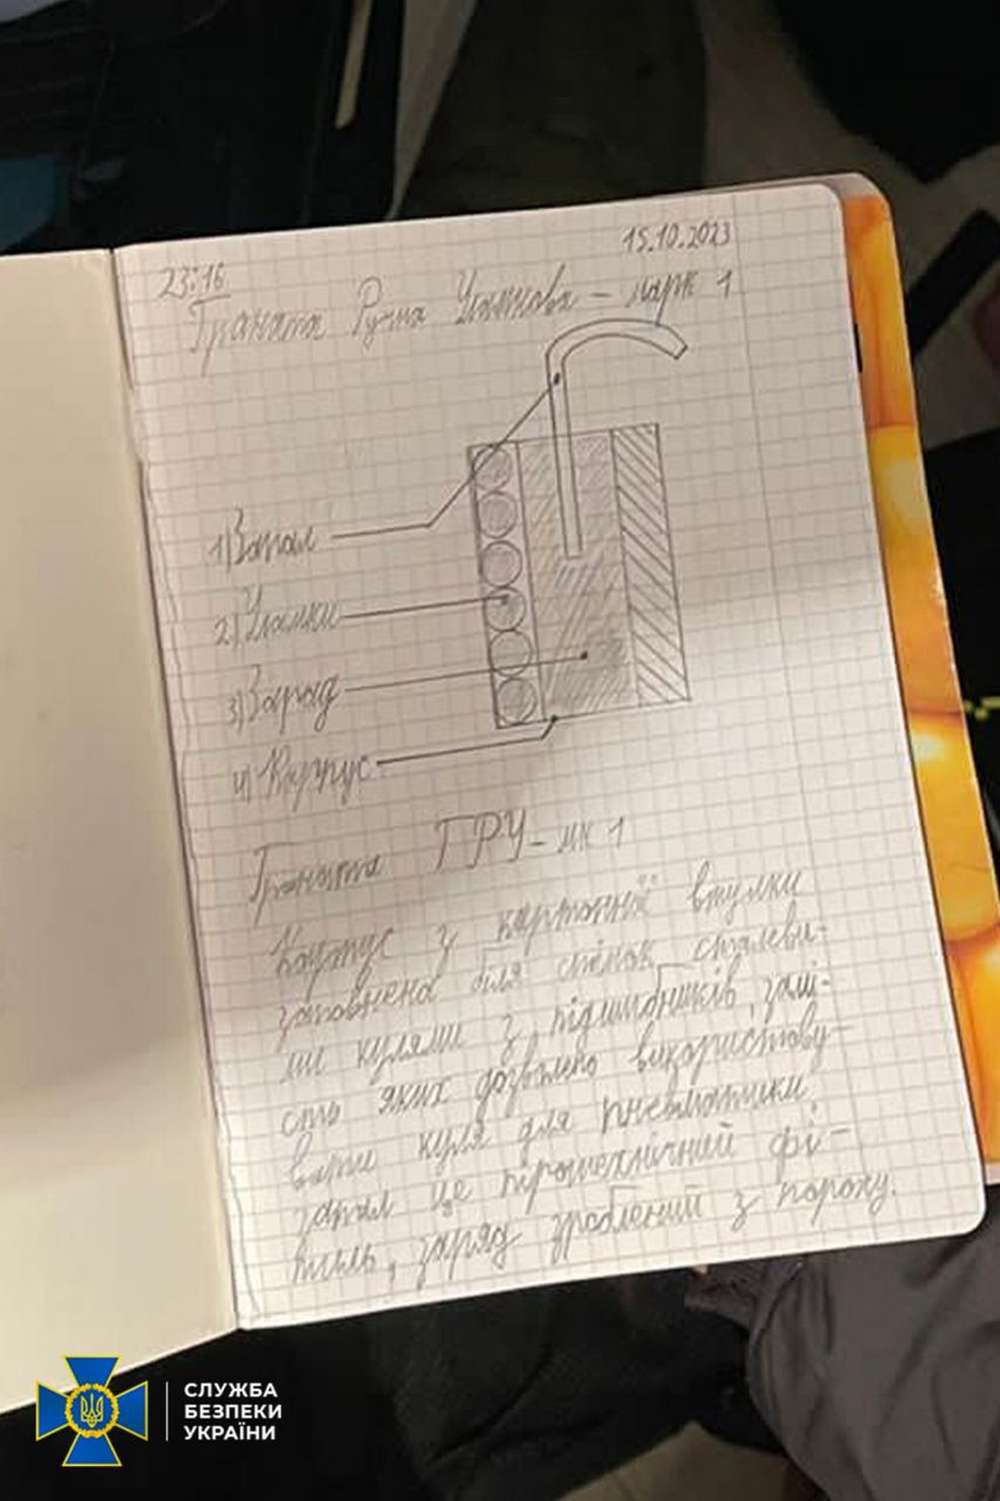 23:16
15.10.2023
Граната Ручна Уламкова – марк 1
1) Запал
2) Уламки
3) Заряд
4) Корпус
Граната ГРУ – мк 1
Корпус з картонної втулки
заповнена біля стінок сталеви-
ми кулями з підшибників, замі-
сть яких дозволено використову-
вати кулі для пневматики,
запал це піротехнічний фі-
тиль, заряд зроблений з пороху.
СЛУЖБА
БЕЗПЕКИ
УКРАЇНИ